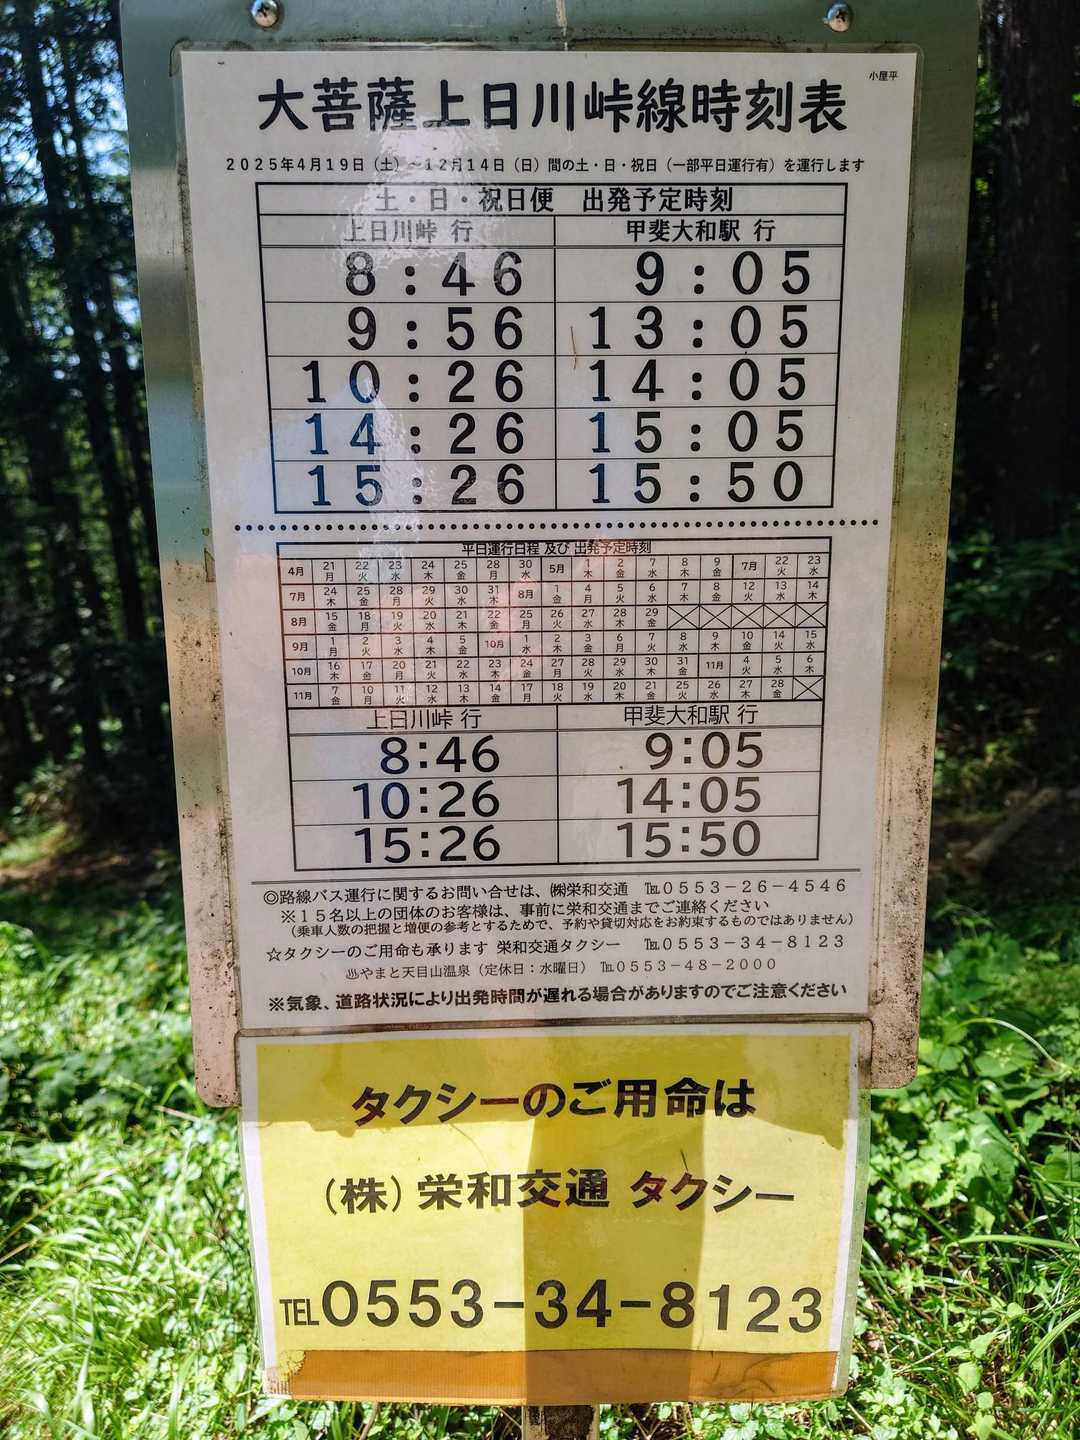 小屋平
大菩薩上日川峠線時刻表
2025年4月19日（土）～12月14日（日）間の土・日・祝日（一部平日運行有）を運行します
土・日・祝日便　出発予定時刻
上日川峠 行　甲斐大和駅 行
8：46　9：05
9：56　13：05
10：26　14：05
14：26　15：05
15：26　15：50
平日運行日程 及び 出発予定時刻
4月 21月 22火 23水 24木 25金 28月 30水 5月 1木 2金 7水 8木 9金 7月 22火 23水
7月 24木 25金 28月 29火 30水 31木 8月 1金 4月 5火 6水 7木 8金 12火 13水 14木
8月 15金 18月 19火 20水 21木 22金 25月 26火 27水 28木 29金
9月 1月 2火 3水 4木 5金 10月 1水 2木 3金 6月 7火 8水 9木 10金 14火 15水
10月 16木 17金 20月 21火 22水 23木 24金 27月 28火 29水 30木 31金 11月 4火 5水 6木
11月 7金 10月 11火 12水 13木 14金 17月 18火 19水 20木 21金 25火 26水 27木 28金
上日川峠 行　甲斐大和駅 行
8：46　9：05
10：26　14：05
15：26　15：50
◎路線バス運行に関するお問い合せは、㈱栄和交通　℡0553－26－4546
※15名以上の団体のお客様は、事前に栄和交通までご連絡ください
（乗車人数の把握と増便の参考とするためで、予約や貸切対応をお約束するものではありません）
☆タクシーのご用命も承ります 栄和交通タクシー　℡0553－34－8123
♨やまと天目山温泉（定休日：水曜日） ℡0553－48－2000
※気象、道路状況により出発時間が遅れる場合がありますのでご注意ください
タクシーのご用命は
（株）栄和交通 タクシー
TEL0553－34－8123